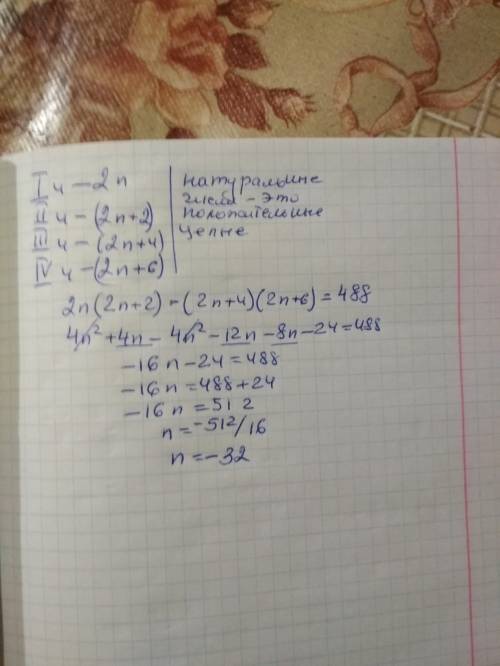 I ч — 2n
II ч — (2n+2)
III ч — (2n+4)
IV ч — (2n+6)
натуральные
числа - это
положительные
целые
2n(2n+2) - (2n+4)(2n+6) = 488
4n² + 4n - 4n² - 12n - 8n - 24 = 488
-16n - 24 = 488
-16n = 488 + 24
-16n = 512
n = -512/16
n = -32